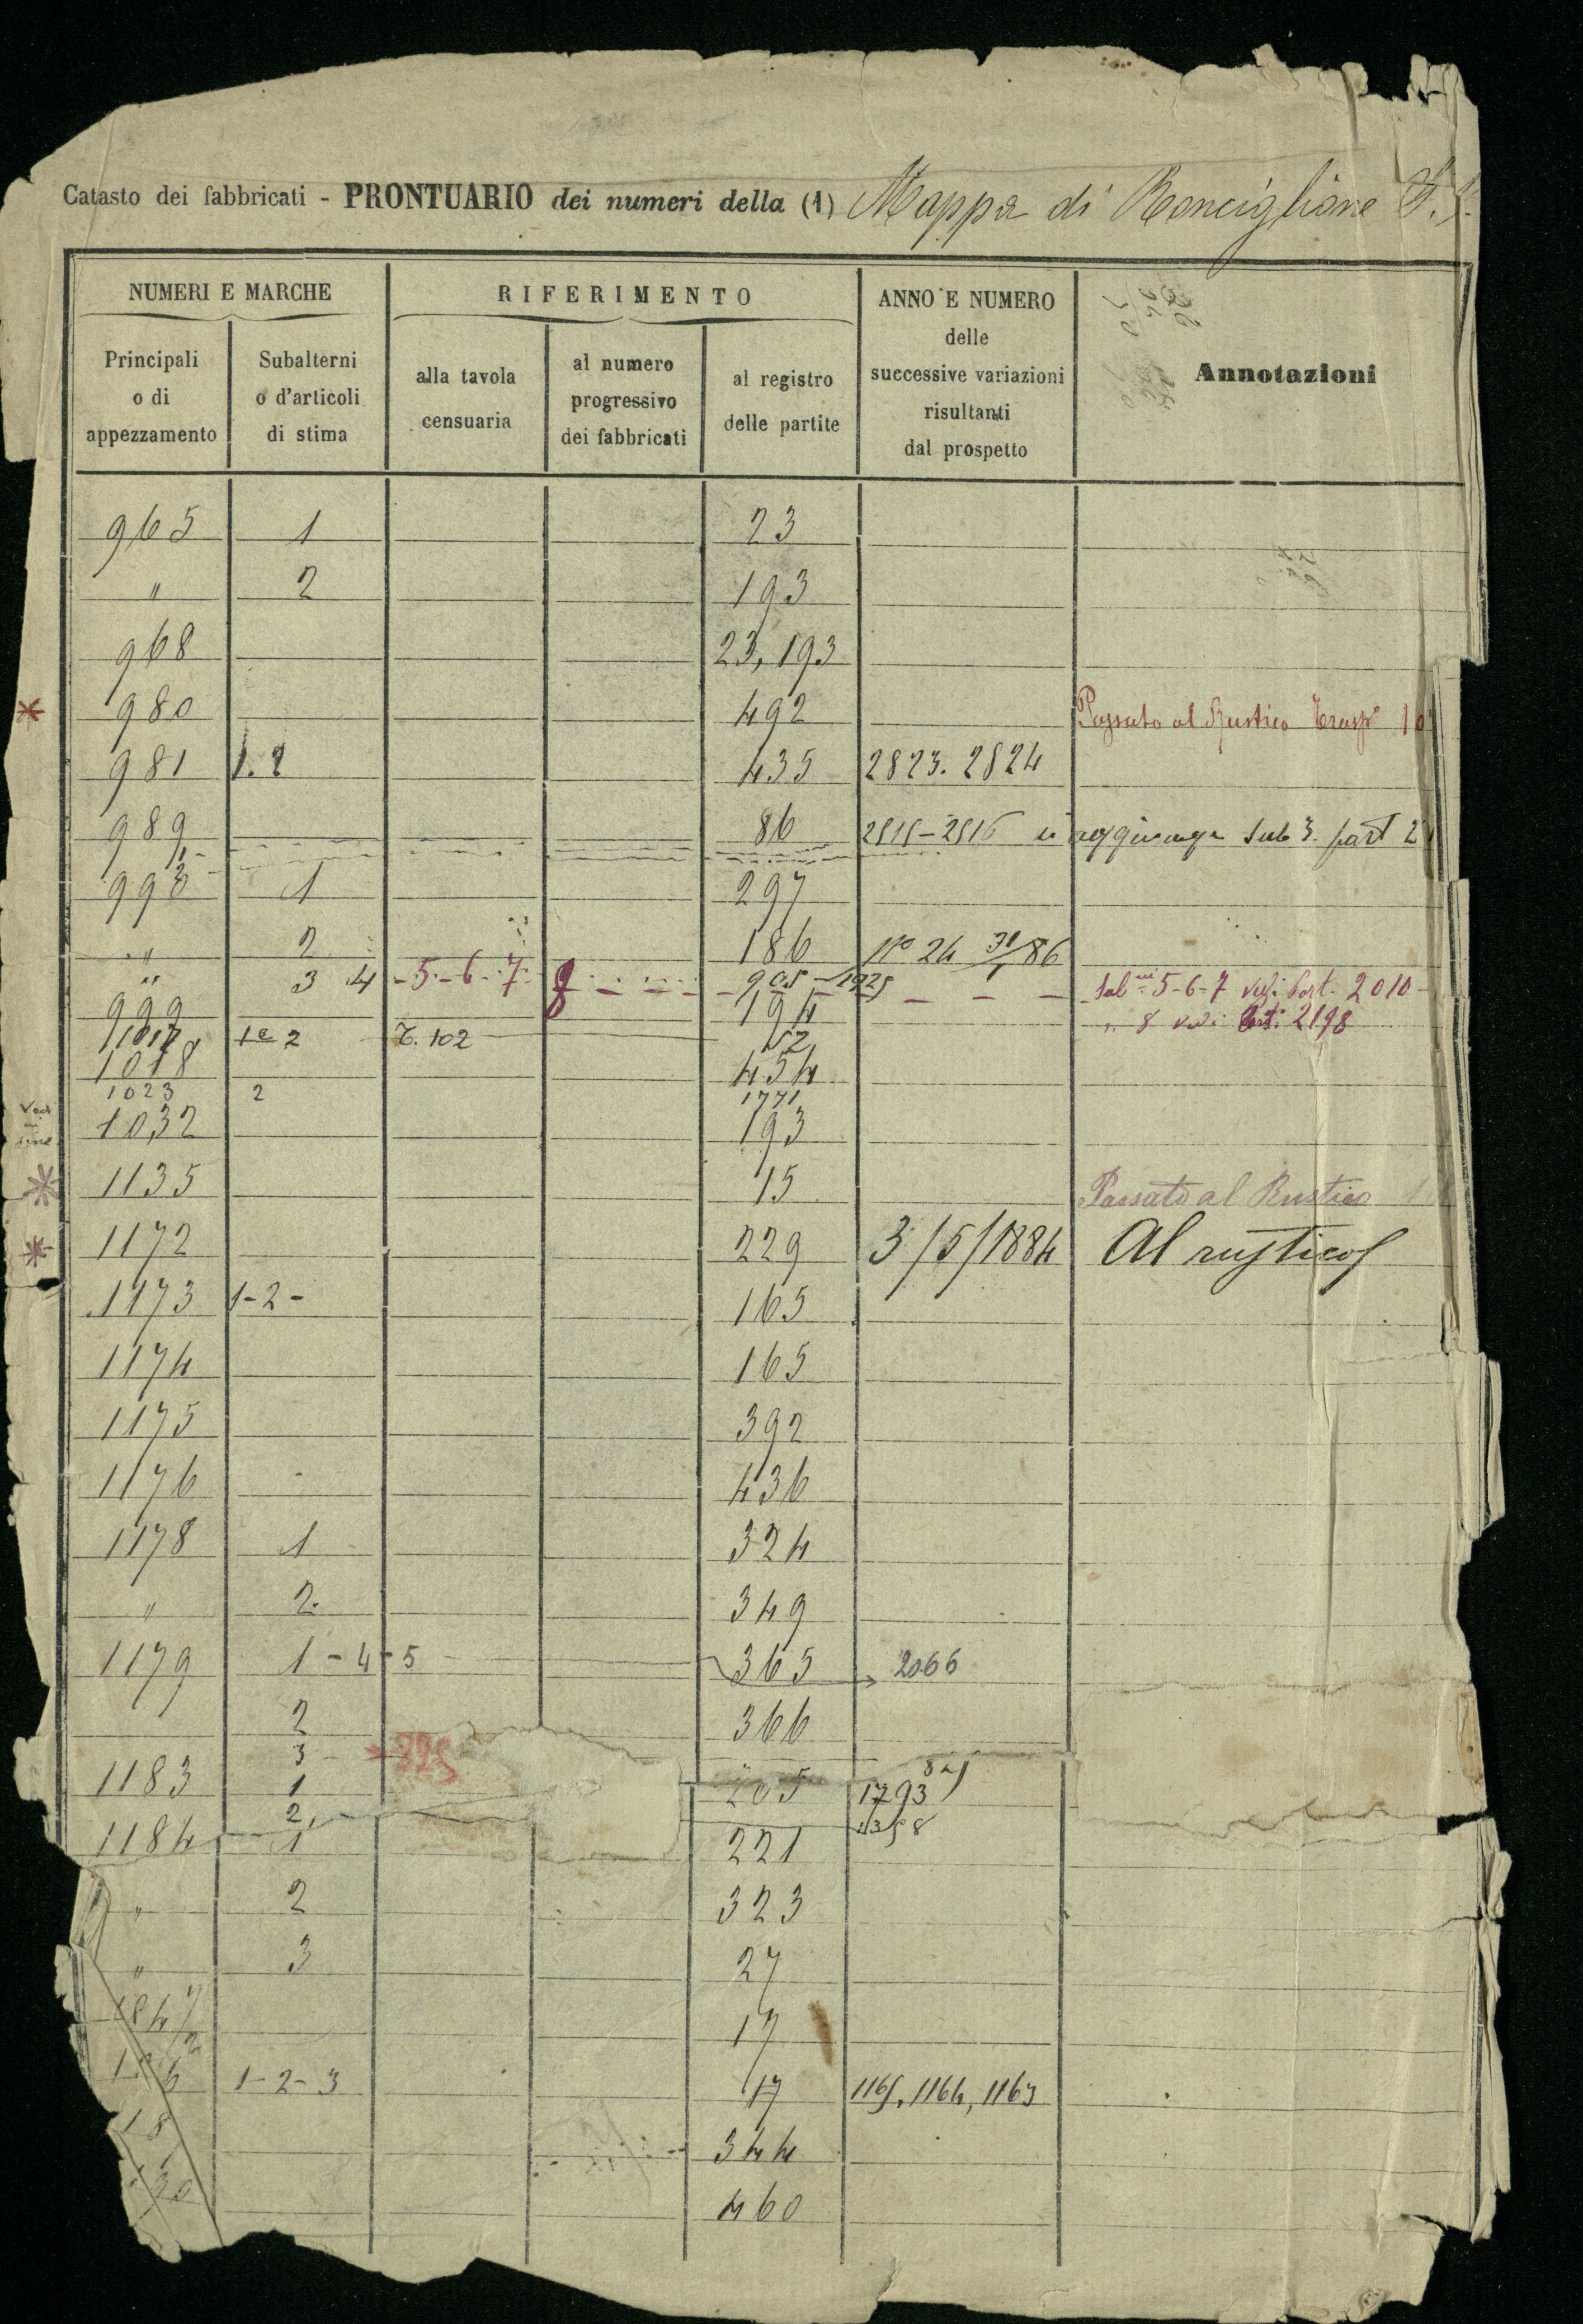 Catasto dei fabbricati - PRONTUARIO dei numeri della (1) Mappa di Ronciglione
NUMERI E MARCHE
RIFERIMENTO
ANNO E NUMERO
delle
successive variazioni
risultanti
dal prospetto
Annotazioni
Principali
o di
appezzamento
Subalterni
o d'articoli
di stima
alla tavola
censuaria
al numero
progressivo
dei fabbricati
al registro
delle partite
965 1 23
" 2 193
968 23, 193
980 492 Passato al Rustico
981 1.2 435 2823. 2824
989 86 si aggiunga Sub 3. part 2
993 1 297
" 2 186 N° 24
" 3 4 - 5 - 6 - 7 8 905 - 1925 5-6-7 vedi Part. 2010
999 194 " 8 vedi Part. 2198
1017 1 e 2 T. 102 52
1018 454
1023 2 1771
1032 193
1135 15 Passato al Rustico
1172 229 3/5/1884 Al rustico
1173 1-2- 165
1174 165
1175 392
1176 436
1178 1 324
" 2. 349
1179 1 - 4 - 5 365 2066
2 366
3
1183 1 205 1793
2
1184 1 221
" 2 323
" 3 27
17
1-2-3 17 1165, 1164, 1163
344
460